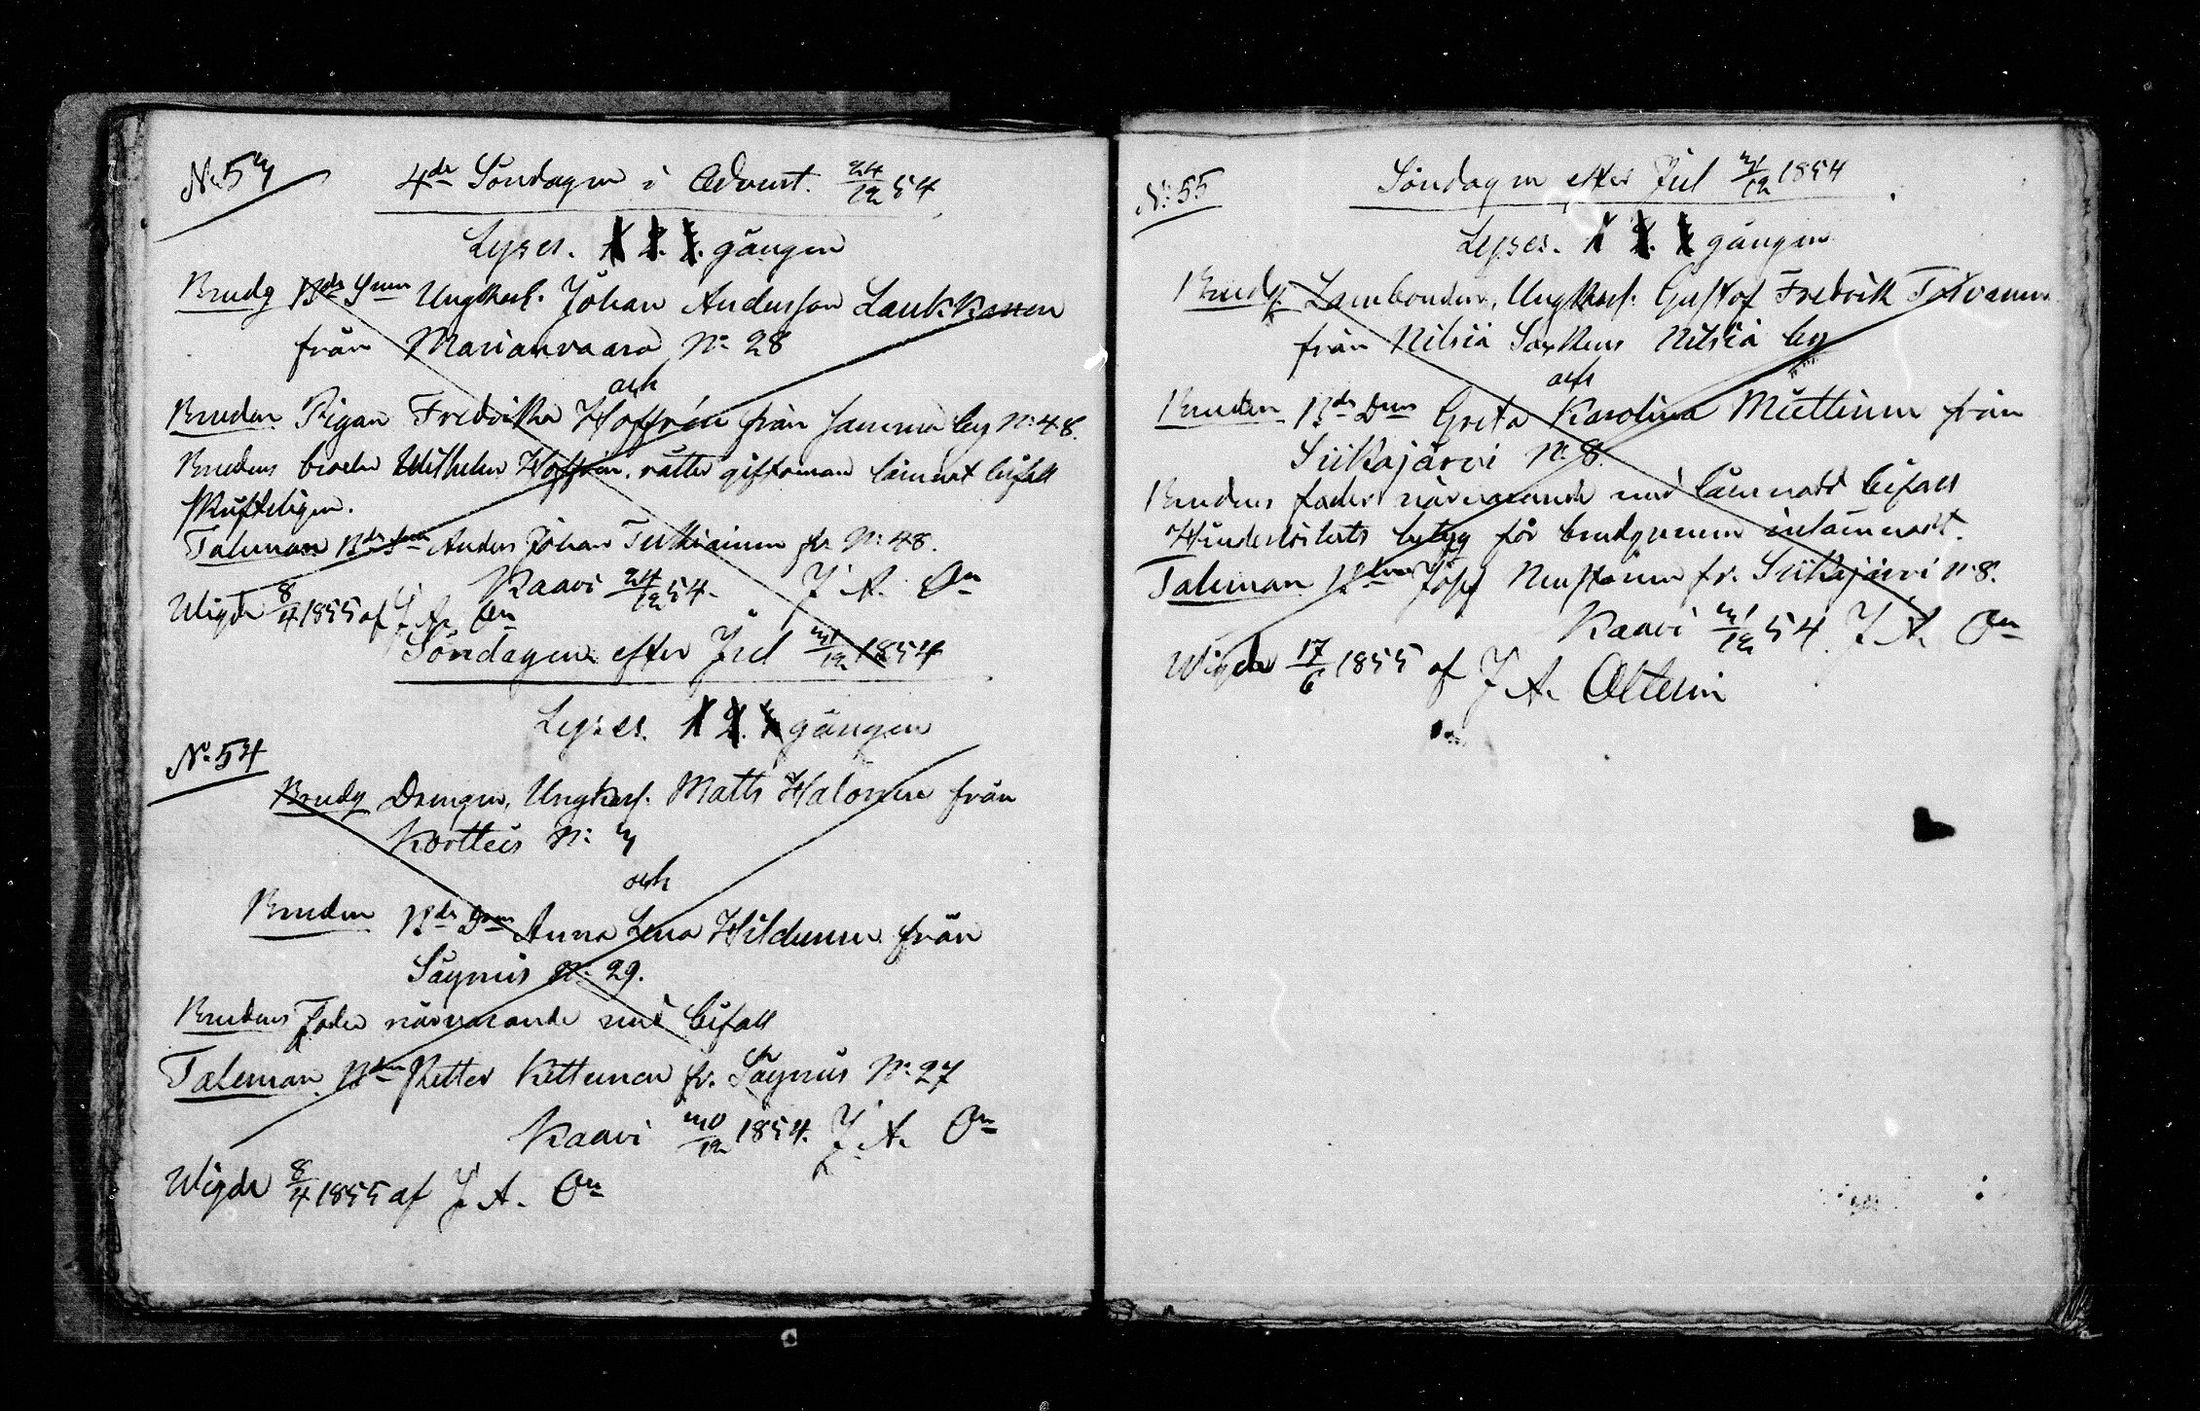 N:o 53
4de Söndagen i Advent. 24/12 54
Lyses. 1 2. 3. gången
Brudg Bde Sonen Ungkarl. Johan Andersson Laukkanen
från Marianvaara N:o 28
och
Bruden Pigan Fredrika Hoffrén från samma by N:o 48.
Brudens broder Wilhelm Hoffrén. rätter giftoman lämnat bifall
skrifteligen.
Taleman Bde Sn Anders Johan Tukiainen fr. N:o 48.
Kaavi 24/12 54. J. A. On
Wigde 8/4 1855 af J. A. On
Söndagen efter Jul 31/12 1854
Lyses. 1 2. 3 gången
N:o 54
Brudg Drengen, Ungkarl. Matts Halonen från
Kortteis N:o 3
och
Bruden Bde Dren Anna Lena Hildunen från
Säynris N:o 29.
Brudens Fader närvarande med bifall
Taleman Bden Petter Kettunen fr. Säynris N:o 27
Kaavi 30/12 1854. J. A. On
Wigde 8/4 1855 af J. A. On
N:o 55
Söndagen efter Jul 31/12 1854
Lyses. 1 2. 3 gången
Brudg. Landbonden, Ungkarl. Gustof Fredrik Tolvanen
från Nilsiä Sockens Nilsiä by
och
Bruden Bde Dren Greta Karolina Miettinen från
Siikajärvi N:o 8.
Brudens fader närvarande med lämnadt bifall
Hinderslöshets betyg för brudgummen inlämnadt.
Taleman Josef Mustonen fr. Siikajärvi N:o 8.
Kaavi 31/12 54. J. A. On
Wigde 17/6 1855 af J. A. Oltelin